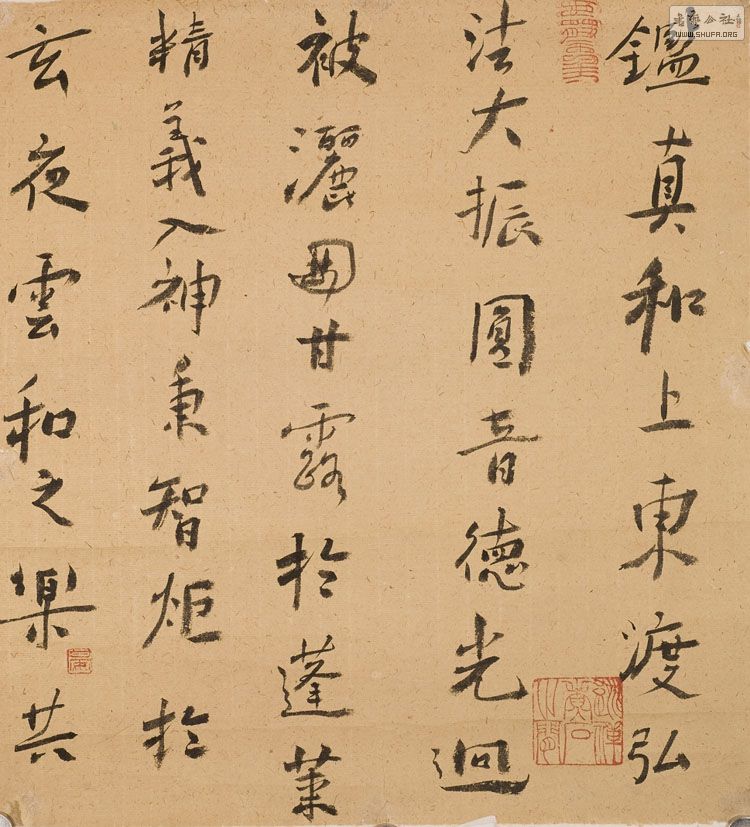 鑑真和上東渡弘
法大振圓音德光迴
被灑甘露於蓬萊
精義入神秉智炬於
玄夜雲和之樂共
書藝公社
WWW.SHUFA.ORG